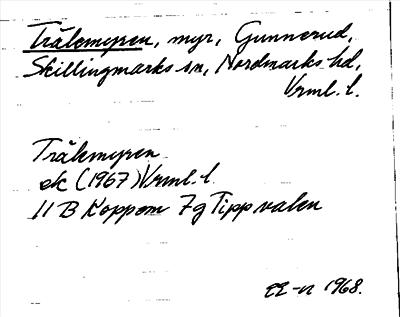 Trälemyren, myr, Gunnerud,
Skillingmarks sn, Nordmarks hd,
Vrml. l.
Trälemyren
ek (1967) Vrml. l.
11 B Koppom 7g Tippvalen
1968.